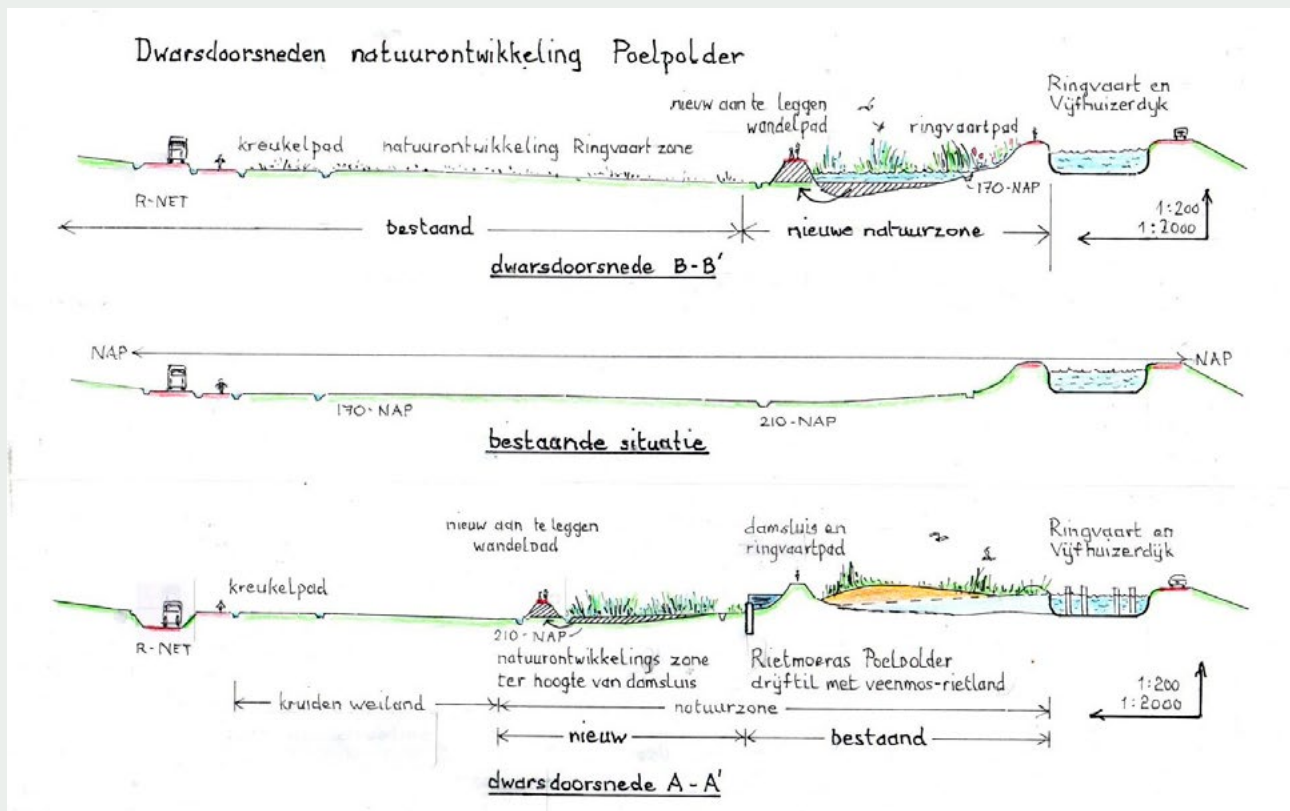 Dwarsdoorsneden natuurontwikkeling Poelpolder
Ringvaart en
Vijfhuizerdyk
nieuw aan te leggen
wandelpad
ringvaartpad
kreukelpad
natuurontwikkeling Ringvaart zone
R-NET
170-NAP
bestaand
nieuwe natuurzone
1:200
1:2000
dwarsdoorsnede B-B'
NAP
NAP
170-NAP
210-NAP
bestaande situatie
nieuw aan te leggen
wandelpad
damsluis en
ringvaartpad
Ringvaart en
Vijfhuizerdijk
kreukelpad
R-NET
210-NAP
natuurontwikkelings zone
ter hoogte van damsluis
Rietmoeras Poelpolder
drijftil met veenmos-rietland
kruiden weiland
natuurzone
1:200
1:2000
nieuw
bestaand
dwarsdoorsnede A-A'